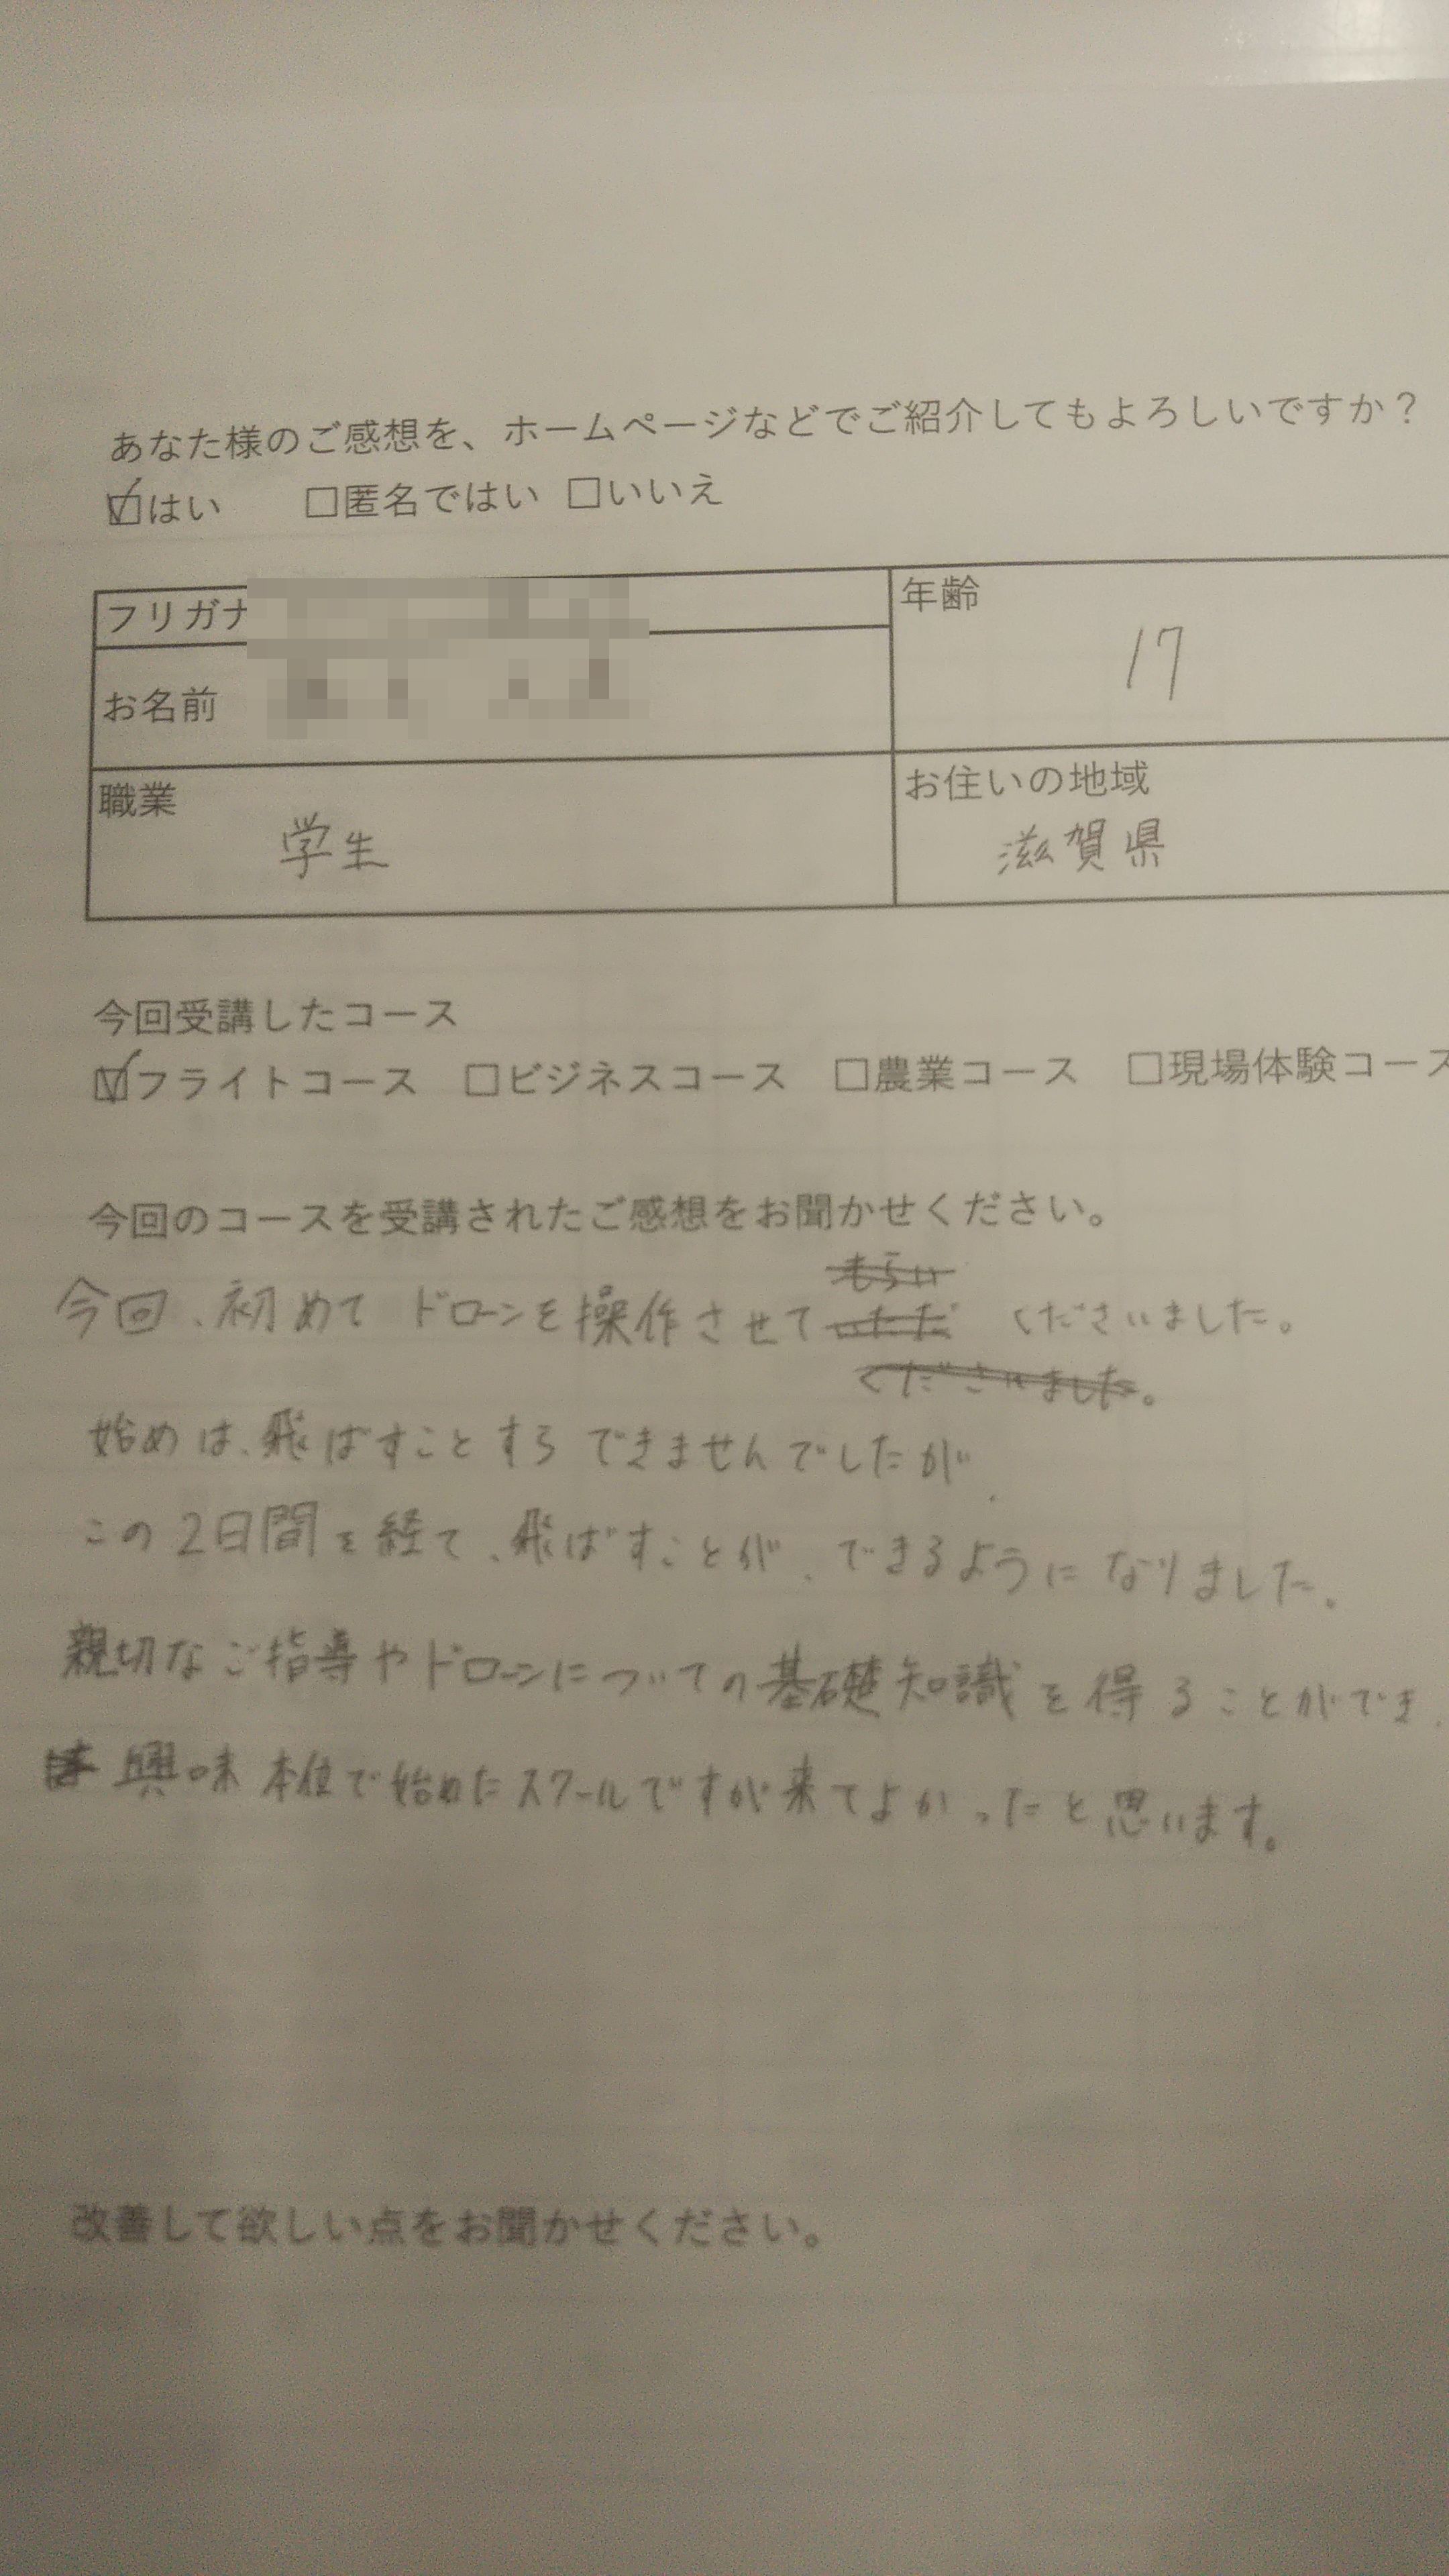 あなた様のご感想を、ホームページなどでご紹介してもよろしいですか？
☑はい　□匿名ではい　□いいえ
フリガナ
お名前
年齢
17
職業
学生
お住いの地域
滋賀県
今回受講したコース
☑フライトコース　□ビジネスコース　□農業コース　□現場体験コース
今回のコースを受講されたご感想をお聞かせください。
もらい
今回、初めてドローンを操作させていただ くださいました。
くださいました。
始めは、飛ばすことすらできませんでしたが、
この2日間を経て、飛ばすことが、できるようになりました。
親切なご指導やドローンについての基礎知識を得ることができ、
興味本位で始めたスクールですが来てよかったと思います。
改善して欲しい点をお聞かせください。